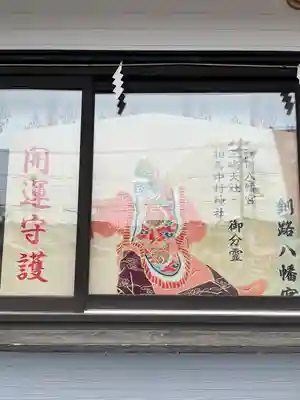 釧路八幡宮
八幡宮
大社
相馬中村神社
御分霊
開運守護